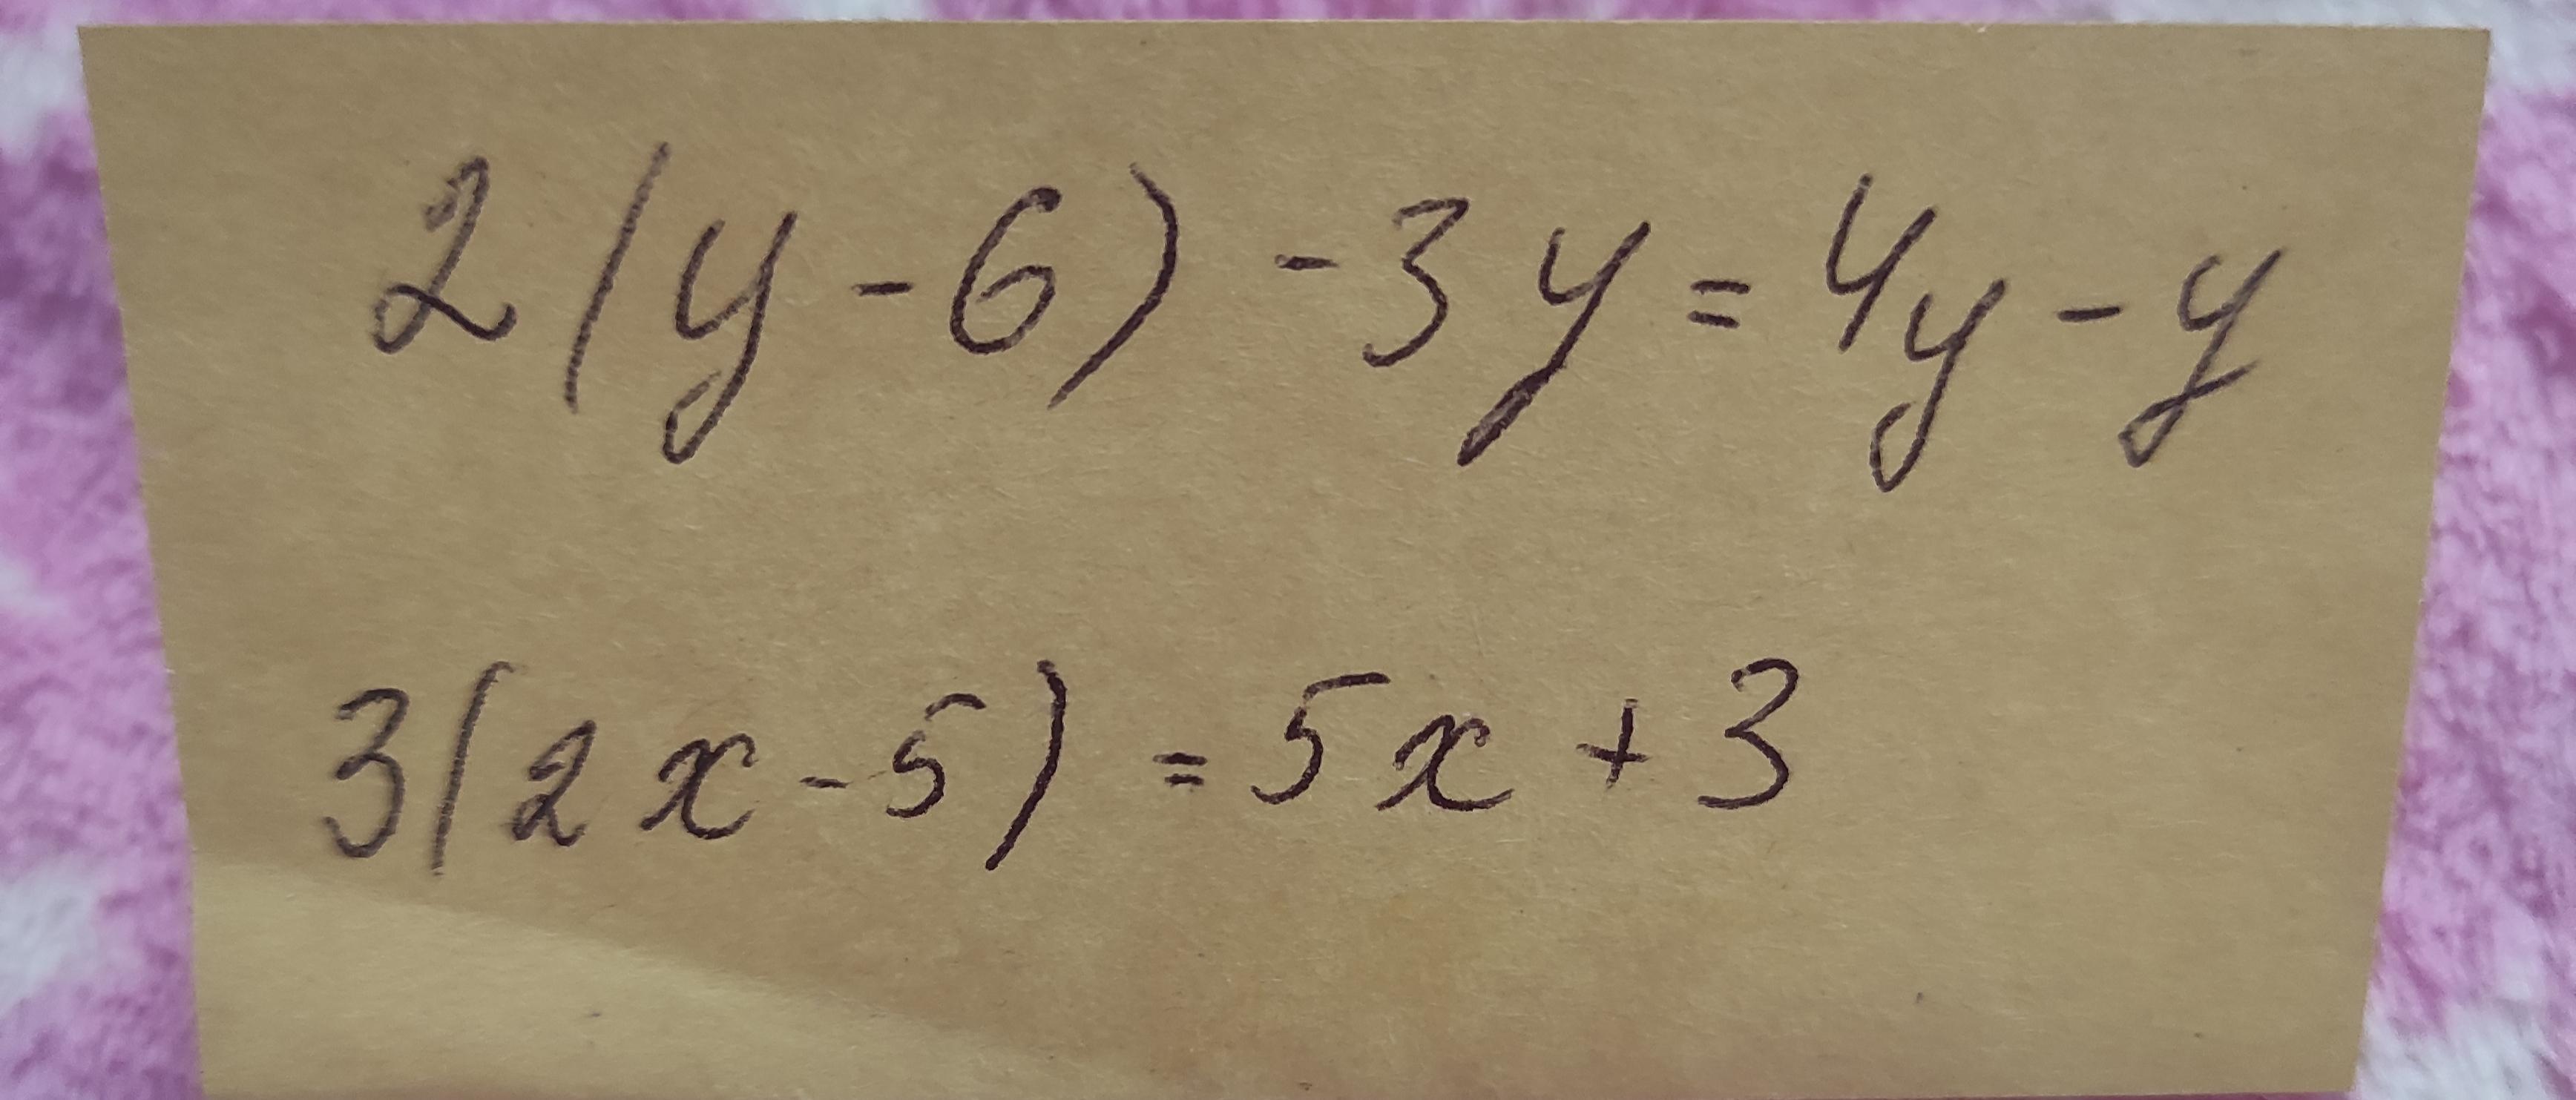 2(y-6)-3y=4y-y
3(2x-5)=5x+3